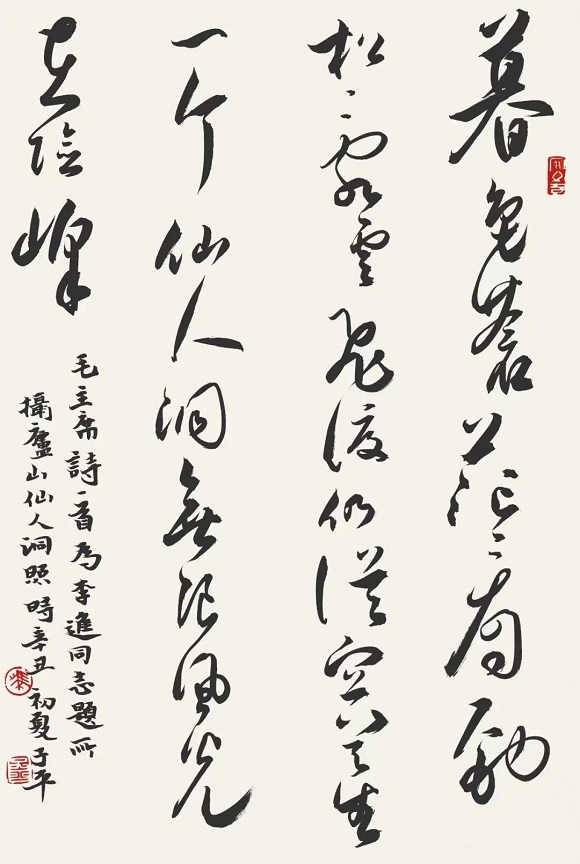 暮色蒼茫看勁
松亂雲飛渡仍從容天生
一个仙人洞無限風光
在險峰
毛主席詩一首為李進同志題所
攝廬山仙人洞照時辛丑初夏子平